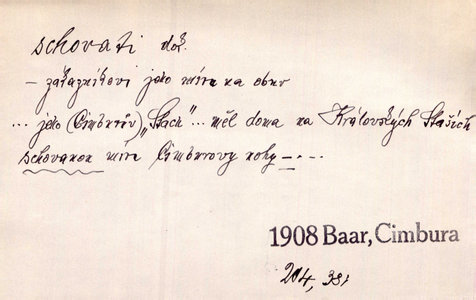 schovati dok.
– zákazníkovi jako míra na obuv
... jeho (Cimburův) „Stach“ ... měl doma na Královských Staších
schovanou míru Cimburovy nohy – . – .
1908 Baar, Cimbura
204, 38;